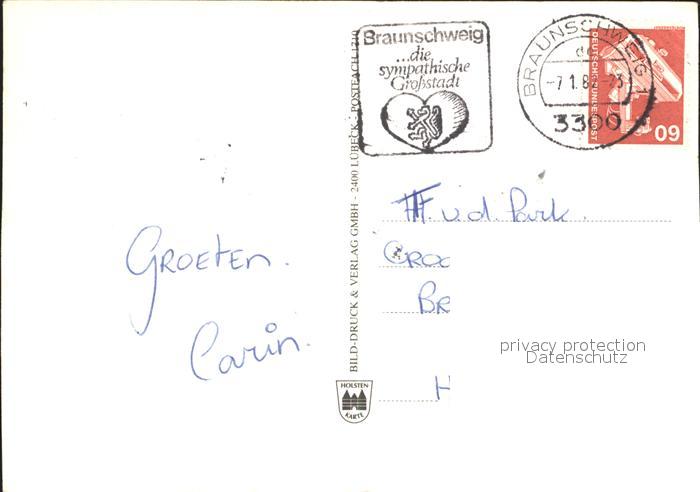 Braunschweig
...die
sympathische
Großstadt
BRAUNSCHWEIG 1
3300
DEUTSCHE BUNDESPOST
60
BILD-DRUCK & VERLAG GMBH - 2400 LÜBECK - POSTFACH
HOLSTEN
KARTE
GROETEN.
Carin.
v.d. Park.
privacy protection
Datenschutz